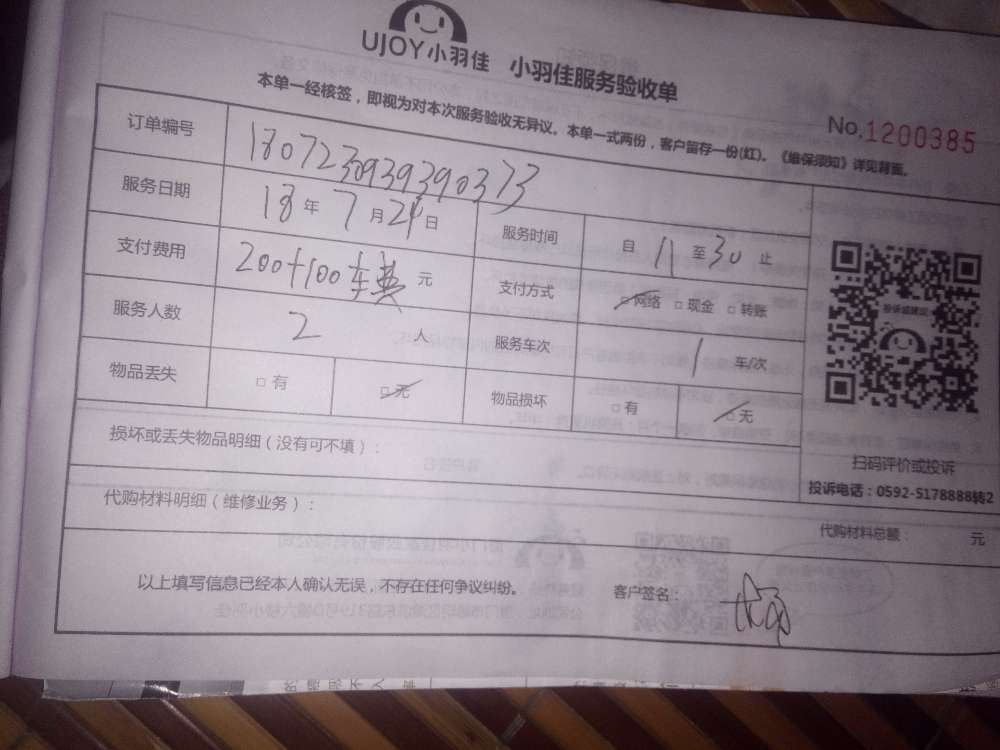 UJOY小羽佳 小羽佳服务验收单
No.1200385
本单一经核签，即视为对本次服务验收无异议。本单一式两份，客户留存一份(红)。《维保须知》详见背面。
订单编号 1807230939390373
服务日期 18年7月24日 服务时间 自11至30止
支付费用 200+100车费元 支付方式 □网络 □现金 □转账
服务人数 2人 服务车次 1车/次
物品丢失 □有 □无 物品损坏 □有 □无
投诉或建议
扫码评价或投诉
投诉电话：0592-5178888转2
损坏或丢失物品明细（没有可不填）：
代购材料明细（维修业务）： 代购材料总额： 元
以上填写信息已经本人确认无误，不存在任何争议纠纷。 客户签名：